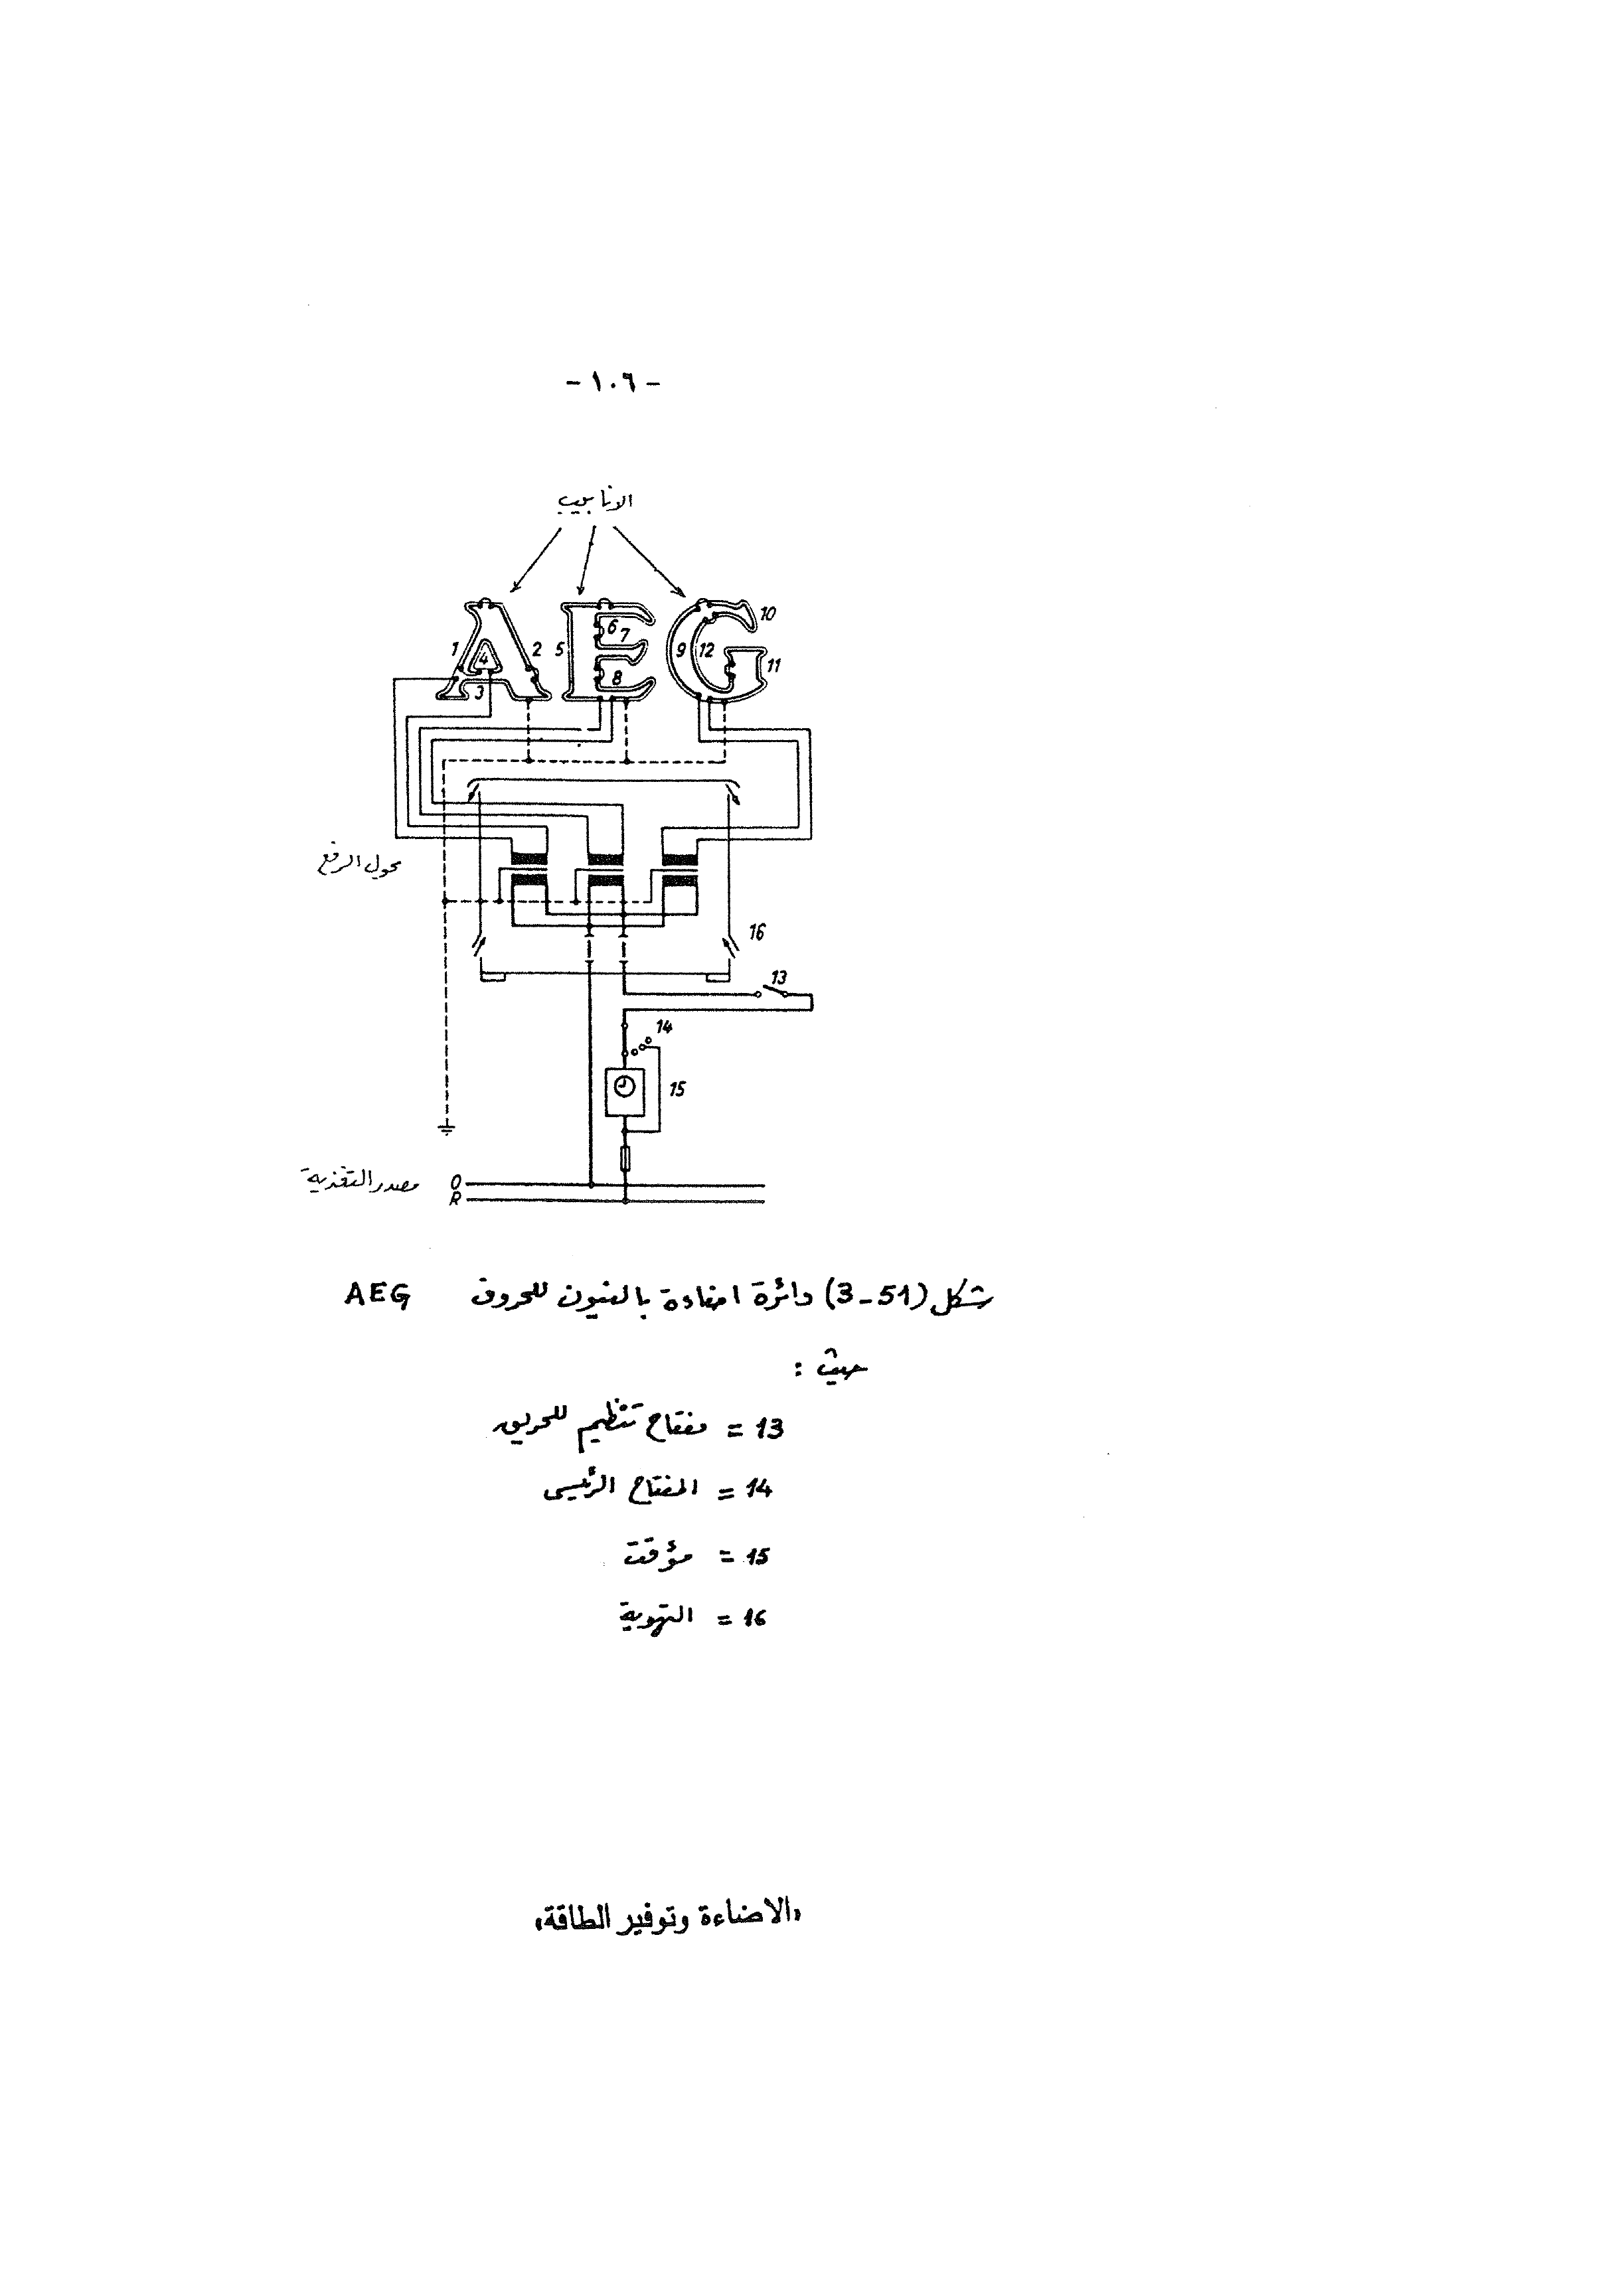 - ١٠٦ -
الانابيب
AEG
1
2
3
4
5
6
7
8
9
10
11
12
محول الرفع
16
13
14
15
مصدر التغذية O
R
شكل (3-51) دائرة اضاءة بالنيون للحروف AEG
حيث :
13 = مفتاح تنظيم للحريق
14 = المفتاح الرئيسى
15 = مؤقت
16 = التهوية
«الاضاءة وتوفير الطاقة»